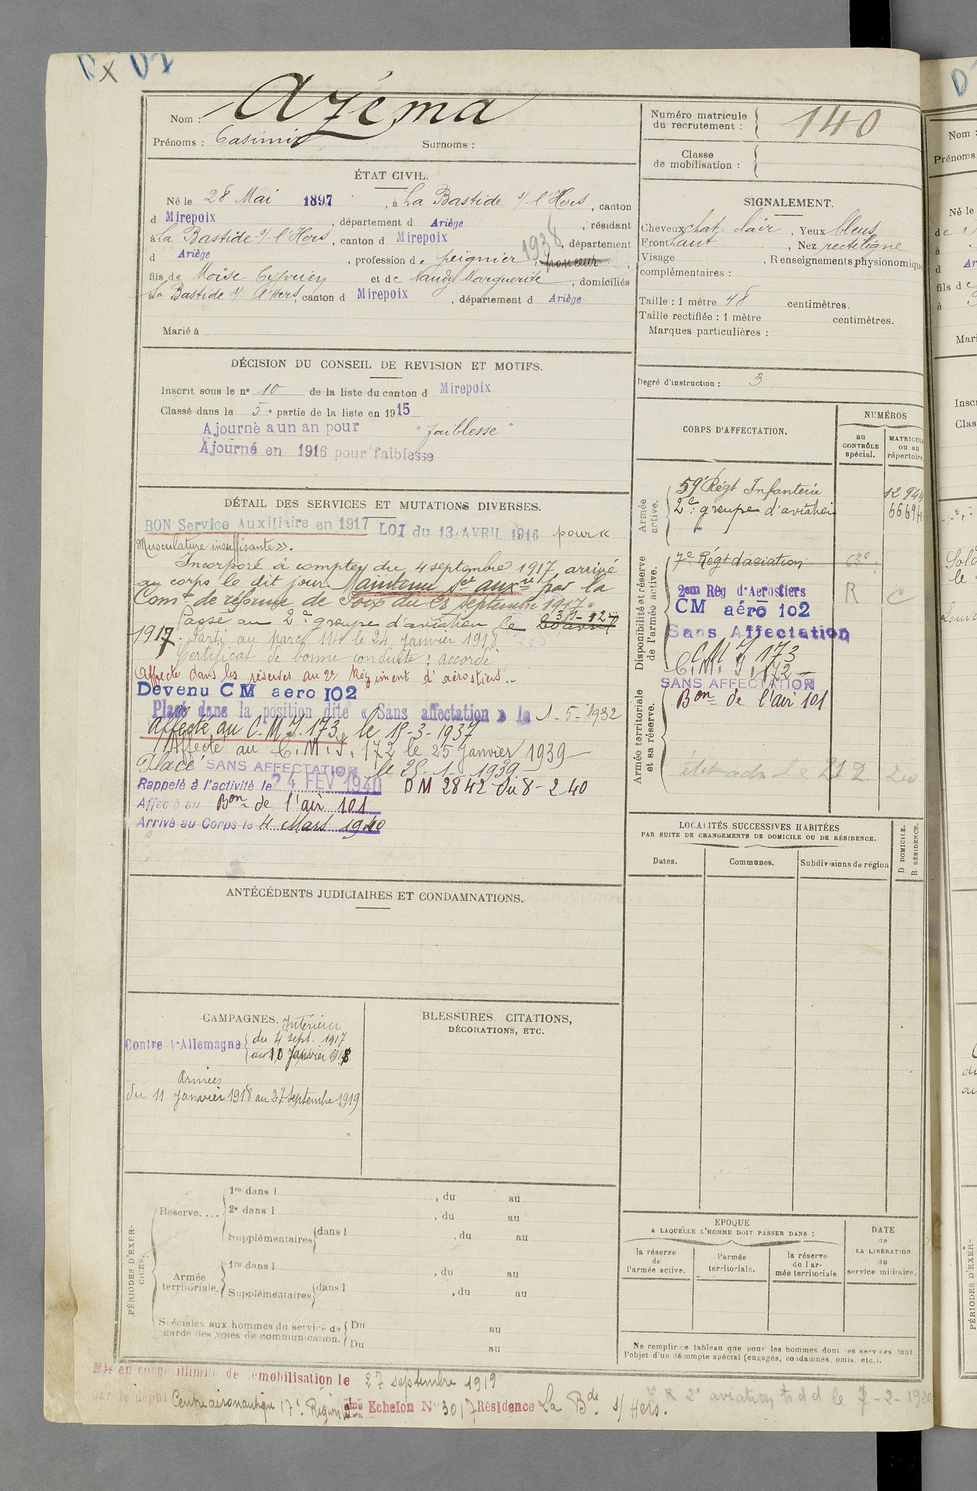 Nom : Azéma
Prénoms : Casimir Surnoms :
Numéro matricule du recrutement : 140
Classe de mobilisation :
ÉTAT CIVIL.
Né le 28 Mai 1897, à La Bastide s/ l'Hers, canton
d Mirepoix, département d Ariège, résidant
à La Bastide s/ l'Hers, canton d Mirepoix, département
d Ariège, profession de peignier 1938
fils de Moïse Cyprien et de Naudy Marguerite, domiciliés
La Bastide s/ l'Hers, canton d Mirepoix, département d Ariège
Marié à
SIGNALEMENT.
Cheveux chat. clair, Yeux bleus
Front haut, Nez rectiligne
Visage , Renseignements physionomique
complémentaires :
Taille : 1 mètre 48 centimètres.
Taille rectifiée : 1 mètre centimètres.
Marques particulières :
Degré d'instruction : 3
DÉCISION DU CONSEIL DE REVISION ET MOTIFS.
Inscrit sous le n° 10 de la liste du canton d Mirepoix
Classé dans la 5e partie de la liste en 1915
Ajourné a un an pour "faiblesse"
Ajourné en 1916 pour faiblesse
DÉTAIL DES SERVICES ET MUTATIONS DIVERSES.
BON Service Auxiliaire en 1917 LOI du 13 AVRIL 1916 pour «
Musculature insuffisante ».
Incorporé à compter du 4 septembre 1917, arrivé
au corps le dit jour. Maintenu Sce auxre par la
Comon de réforme de Foix du septembre 1917.
Passé au 2e groupe d'aviation le 30-12
1917. Parti au parc 114 le 24 Janvier 1918
Certificat de bonne conduite : accordé
Affecté dans les réserves au 2e Régiment d'aérostiers.
Devenu CM aero 102
Placé dans la position dite « Sans affectation » le 1-5-1932
Affecté au C.M.I. 173, le 18-3-1937
Affecté au C.M.I. 172 le 25 Janvier 1939
Placé SANS AFFECTATION le 25-1-1939
Rappelé à l'activité le 24 FEV 1940 DM 2842 du 8-2-40
Affecté au Bon de l'air 101
Arrivé au Corps le 4 Mars 1940
CORPS D'AFFECTATION.
NUMÉROS
au CONTRÔLE spécial.
MATRICULE ou au répertoire
Armée active.
59e Régt Infanterie 12944
2e groupe d'aviation
Disponibilité et réserve de l'armée active.
7e Régt d'aviation
2eme Rég d'Aerostiers R C
CM aéro 102
Sans Affectation
C.M.I 173
C.M.I. 172
SANS AFFECTATION
Armée territoriale et sa réserve.
Bon de l'air 101
LOCALITÉS SUCCESSIVES HABITÉES
PAR SUITE DE CHANGEMENTS DE DOMICILE OU DE RÉSIDENCE.
Dates. Communes. Subdivisions de région
D DOMICILE. R RÉSIDENCE.
ANTÉCÉDENTS JUDICIAIRES ET CONDAMNATIONS.
CAMPAGNES.
Intérieur
Contre l'Allemagne du 4 sept. 1917
au 10 Janvier 1918
Armées
du 11 Janvier 1918 au 27 Septembre 1919
BLESSURES, CITATIONS, DÉCORATIONS, ETC.
PÉRIODES D'EXERCICES.
Réserve.... 1re dans l , du au
2e dans l , du au
Supplémentaires dans l , du au
Armée territoriale. 1re dans l , du au
Supplémentaires dans l , du au
Spéciales aux hommes du service de garde des voies de communication. Du au
Du au
EPOQUE
A LAQUELLE L'HOMME DOIT PASSER DANS :
la réserve de l'armée active.
l'armée territoriale.
la réserve de l'armée territoriale
DATE de LA LIBÉRATION du service militaire.
Ne remplir ce tableau que pour les hommes dont les services font l'objet d'un décompte spécial (engagés, condamnés, omis, etc.).
Mis en congé illimité de démobilisation le 27 septembre 1919
par le dépôt Centre aéronautique 17e Région Echelon N° 3017 Résidence La Bde s/ Hers.
R 2e aviation t d d le 7-2-1920